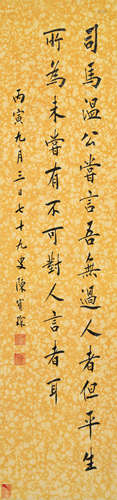 司馬温公嘗言吾無過人者但平生
所為未嘗有不可對人言者耳
丙寅九月三日七十九叟陳寶琛